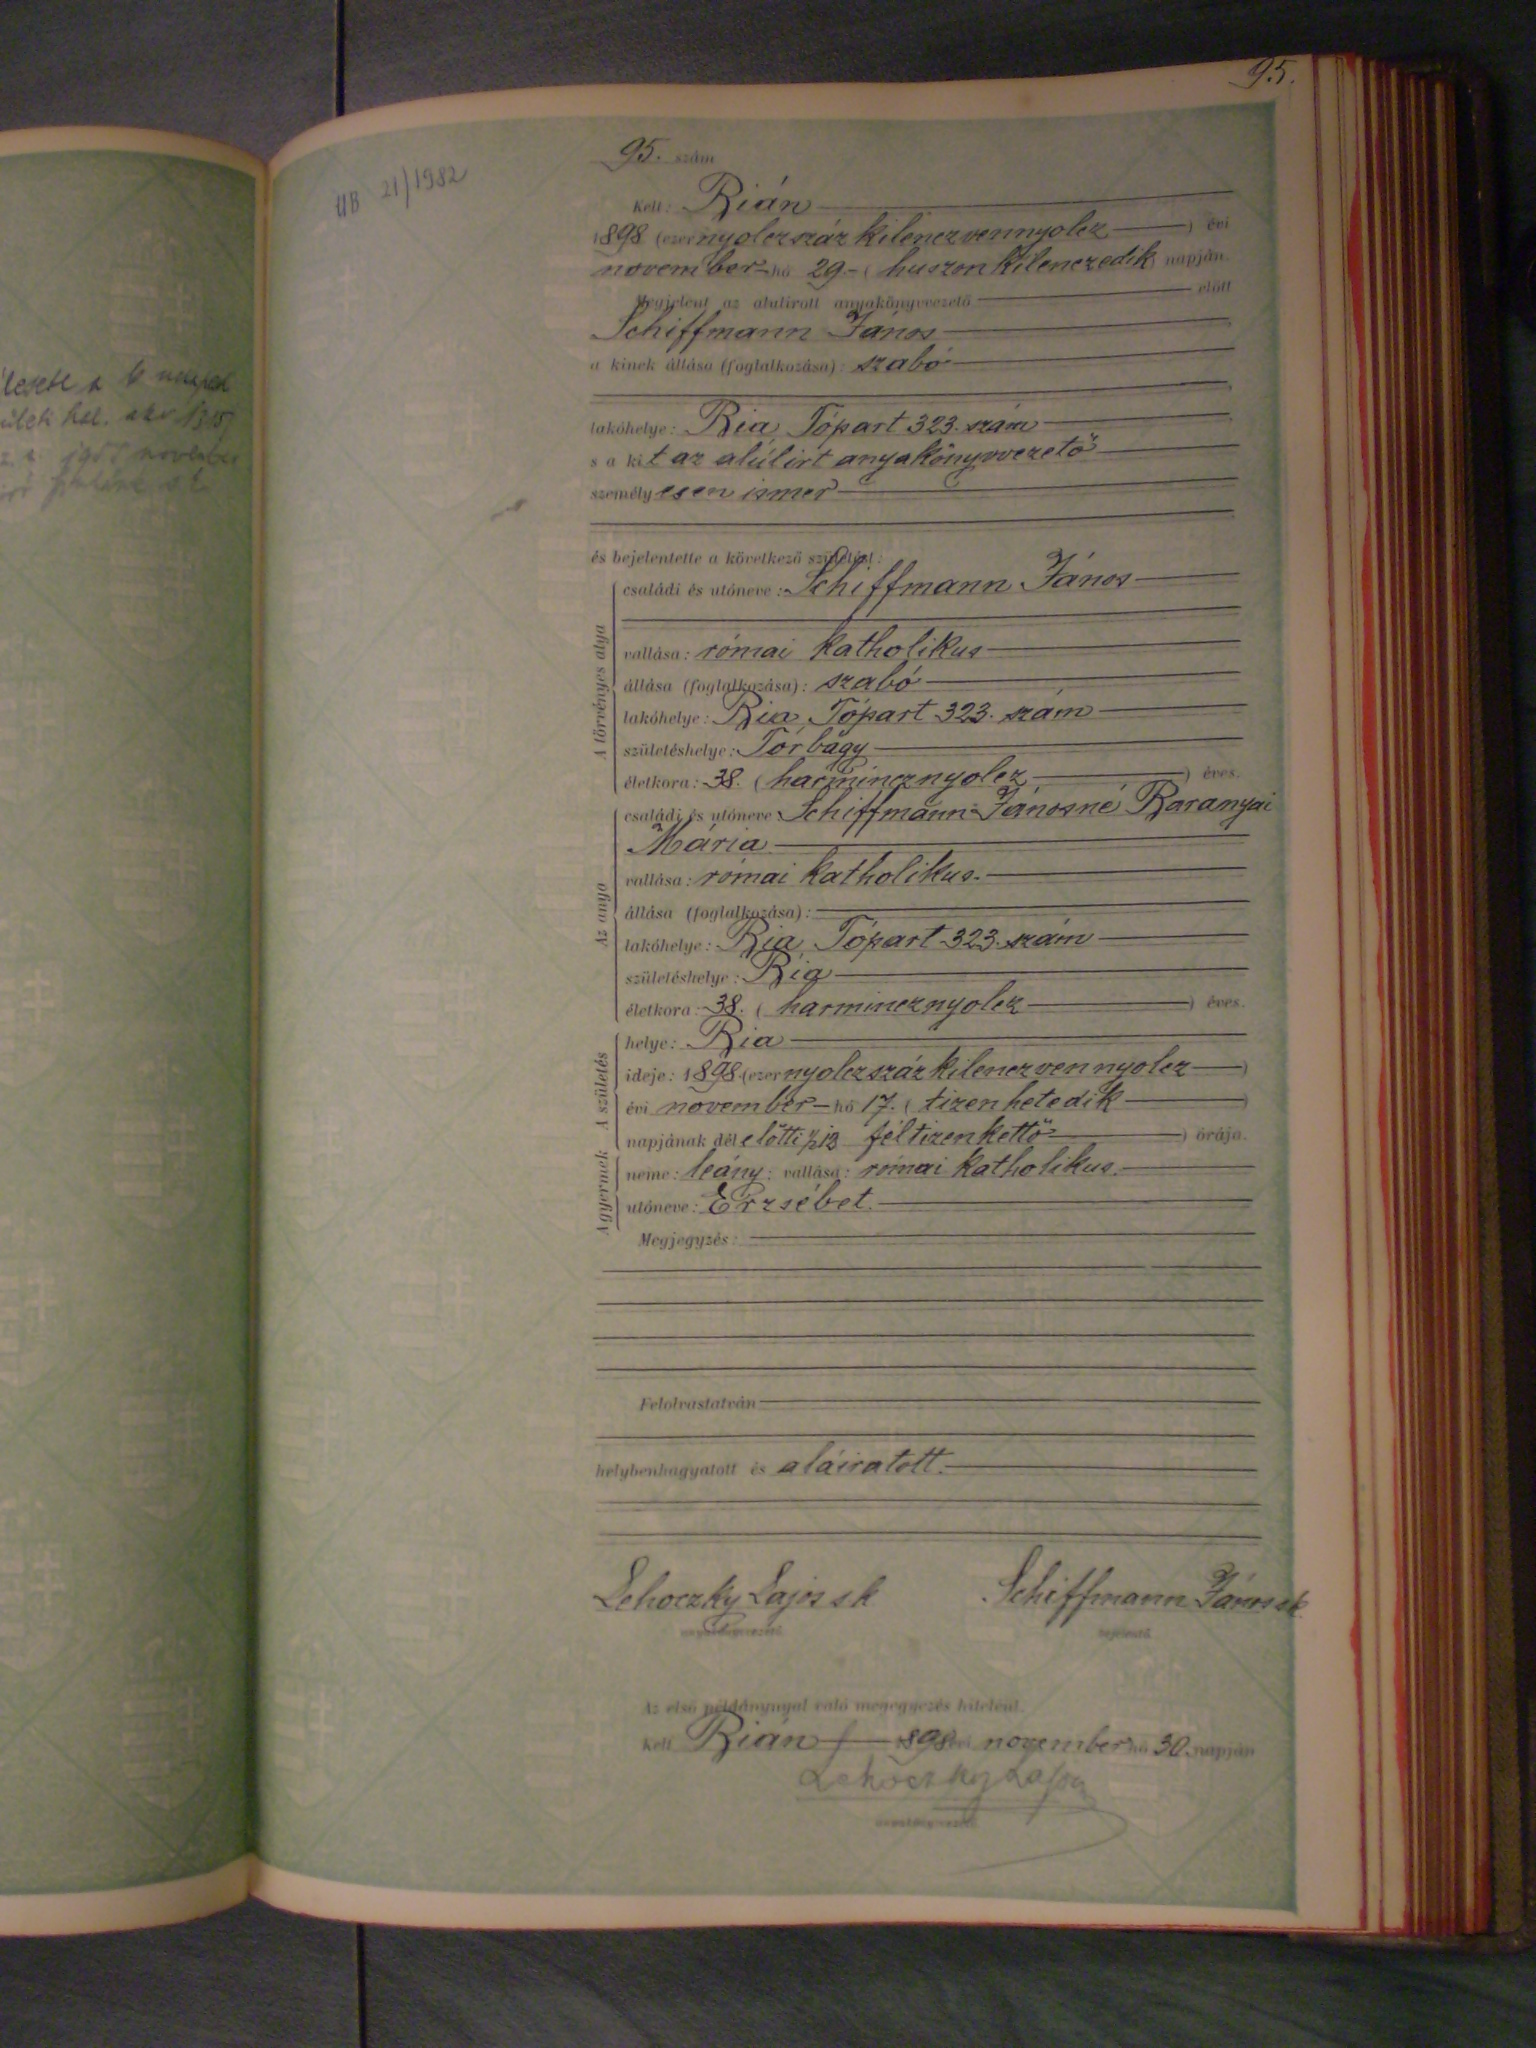 95.
UB 21/1982
95. szám
Kelt: Bián
1898 (ezernyolczszáz kilenczvennyolcz) évi
november hó 29. (huszonkilenczedik) napján.
Megjelent az alulirott anyakönyvvezető előtt
Schiffmann János
a kinek állása (foglalkozása): szabó
lakóhelye: Bia Tópart 323. szám
s a kit az alúlirt anyakönyvvezető
személyesen ismer
és bejelentette a következő születést:
A törvényes atya
családi és utóneve: Schiffmann János
vallása: római katholikus
állása (foglalkozása): szabó
lakóhelye: Bia, Tópart 323. szám
születéshelye: Torbágy
életkora: 38. (harmincznyolcz) éves.
Az anya
családi és utóneve: Schiffmann Jánosné Baranyai
Mária
vallása: római katholikus.
állása (foglalkozása):
lakóhelye: Bia, Tópart 323. szám
születéshelye: Bia
életkora: 38. (harmincznyolcz) éves.
A születés
helye: Bia
ideje: 1898. (ezernyolczszáz kilenczvennyolcz)
évi november hó 17. (tizenhetedik)
napjának délelőtti ½12 féltizenkettő) órája.
A gyermek
neme: leány; vallása: római katholikus.
utóneve: Erzsébet.
Megjegyzés:
Felolvastatván
helybenhagyatott és aláiratott.
Lehoczky Lajos sk Schiffmann János sk
anyakönyvvezető bejelentő
Az első példánynyal való megegyezés hiteléül.
Kelt Bián 1898 évi november hó 30. napján
Lehoczky Lajos
anyakönyvvezető